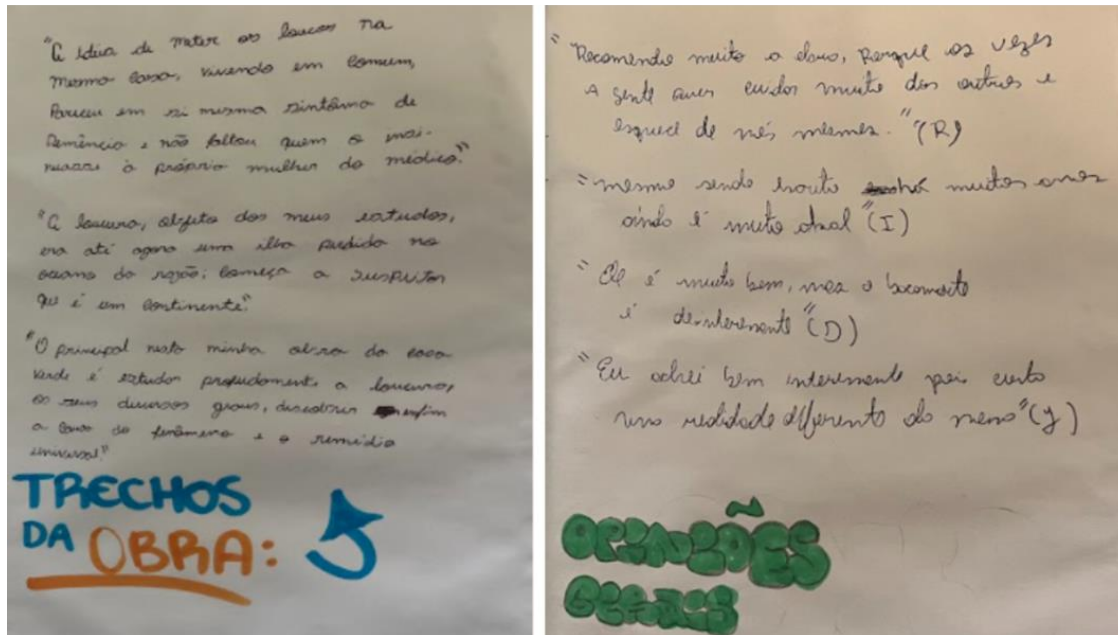 "A ideia de meter os loucos na
mesma casa, vivendo em comum,
pareceu em si mesma sintoma de
demência e não faltou quem o insi-
nuasse à própria mulher do médico."
"A loucura, objeto dos meus estudos,
era até agora uma ilha perdida no
oceano da razão; começo a suspeitar
que é um continente."
"O principal nesta minha obra da casa
verde é estudar profudamente a loucura,
os seus diversos graus, descobrir enfim
a causa do fenômeno e o remédio
universal."
TRECHOS
DA OBRA:
"Recomendo muito a obra, Porque as vezes
A gente quer cuidar muito dos outros e
esquece de nós mesmos." (R)
"mesmo sendo escrito há muitos anos
ainda é muito atual" (I)
"Ele é muito bom, mas o
é" (D)
"Eu achei bem interessante pois
uma realidade diferente do" (Y)
OPINIÕES
GERAIS